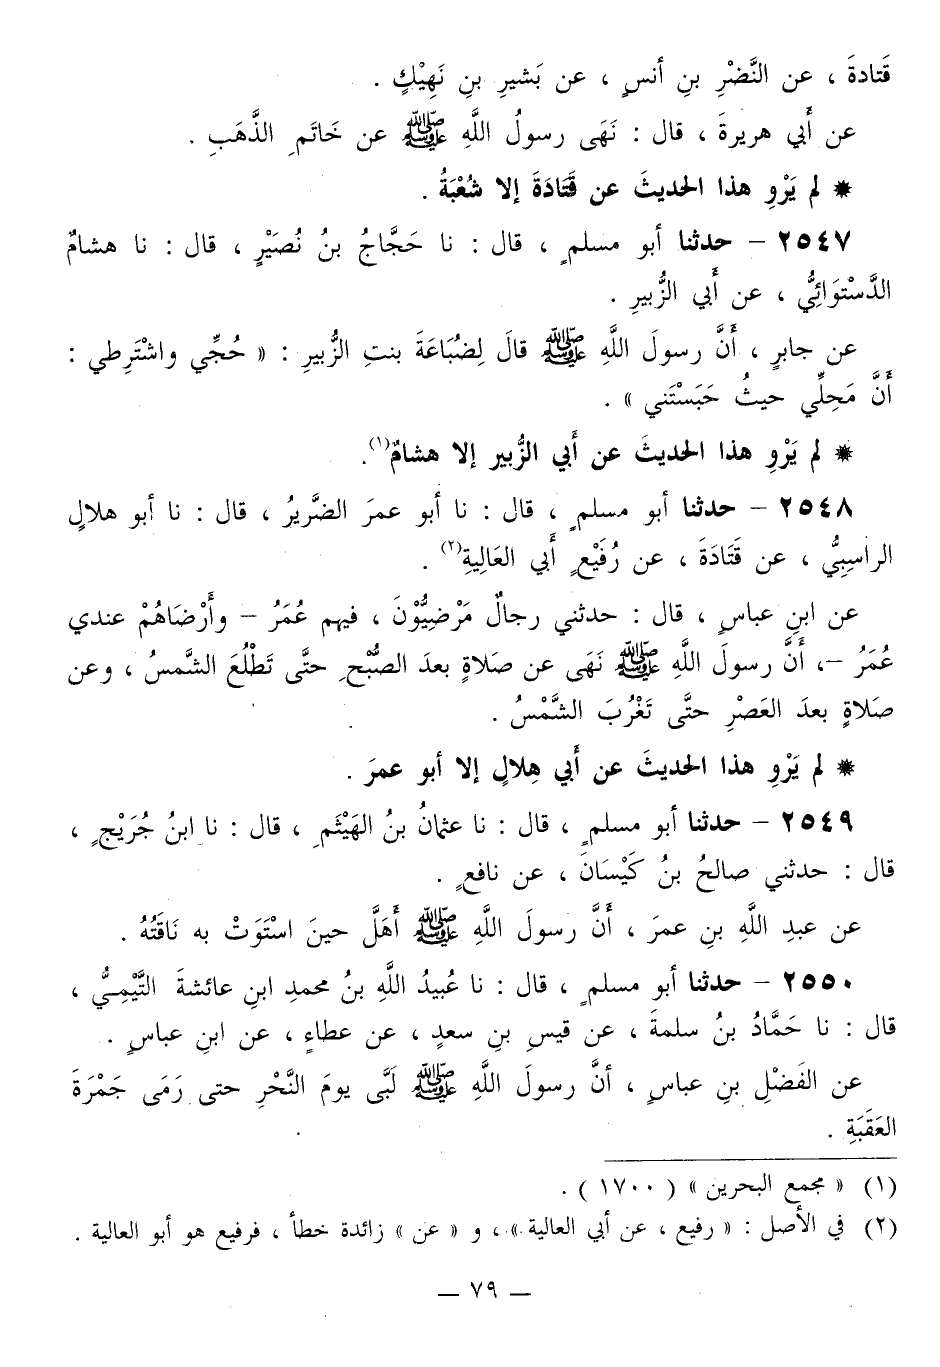 قَتادةَ ، عن النَّضْرِ بنِ أنسٍ ، عن بَشيرِ بنِ نَهِيْكٍ .
عن أَبي هريرةَ ، قال : نَهَى رسولُ اللَّهِ ﷺ عن خَاتَمِ الذَّهَبِ .
* لم يَرْوِ هذا الحديثَ عن قَتَادَةَ إلا شُعْبَةُ .
٢٥٤٧ – حدثنا أبو مسلمٍ ، قال : نا حَجَّاجُ بنُ نُصَيْرٍ ، قال : نا هشامٌ
الدَّسْتوَائِيُّ ، عن أَبي الزُّبيرِ .
عن جابرٍ ، أَنَّ رسولَ اللَّهِ ﷺ قالَ لِضُبَاعَةَ بنتِ الزُّبيرِ : « حُجِّي واشْتَرِطي :
أَنَّ مَحِلِّي حيثُ حَبَسْتَني » .
* لم يَرْوِ هذا الحديثَ عن أَبي الزُّبير إلا هشامٌ(١).
٢٥٤٨ – حدثنا أبو مسلمٍ ، قال : نا أبو عمرَ الضَّريرُ ، قال : نا أبو هلالٍ
الراسِبِيُّ ، عن قَتَادَةَ ، عن رُفَيْعٍ أَبي العَالِيةِ(٢) .
عن ابنِ عباسٍ ، قال : حدثني رجالٌ مَرْضِيُّوْنَ ، فيهم عُمَرُ – وأَرْضَاهُمْ عندي
عُمَرُ –، أَنَّ رسولَ اللَّهِ ﷺ نَهَى عن صَلاةٍ بعدَ الصُّبْحِ حتَّى تَطْلُعَ الشَّمسُ ، وعن
صَلاةٍ بعدَ العَصْرِ حتَّى تَغْرُبَ الشَّمْسُ .
* لم يَرْوِ هذا الحديثَ عن أَبي هِلالٍ إلا أبو عمرَ .
٢٥٤٩ – حدثنا أبو مسلمٍ ، قال : نا عثمانُ بنُ الهَيْثَمِ ، قال : نا ابنُ جُرَيْجٍ ،
قال : حدثني صالحُ بنُ كَيْسَانَ ، عن نافعٍ .
عن عبدِ اللَّهِ بنِ عمرَ ، أَنَّ رسولَ اللَّهِ ﷺ أَهَلَّ حينَ اسْتَوَتْ به نَاقَتُهُ .
٢٥٥٠ – حدثنا أبو مسلمٍ ، قال : نا عُبيدُ اللَّهِ بنُ محمدِ ابنِ عائشةَ التَّيْمِيُّ ،
قال : نا حَمَّادُ بنُ سلمةَ ، عن قيسِ بنِ سعدٍ ، عن عطاءٍ ، عن ابنِ عباسٍ .
عن الفَضْلِ بنِ عباسٍ ، أنَّ رسولَ اللَّهِ ﷺ لَبَّى يومَ النَّحْرِ حتى رَمَى جَمْرَةَ
العَقَبَةِ .
(١) « مجمع البحرين » ( ١٧٠٠ ) .
(٢) في الأصل : « رفيع ، عن أبي العالية » ، و « عن » زائدة خطأ ، فرفيع هو أبو العالية .
– ٧٩ –